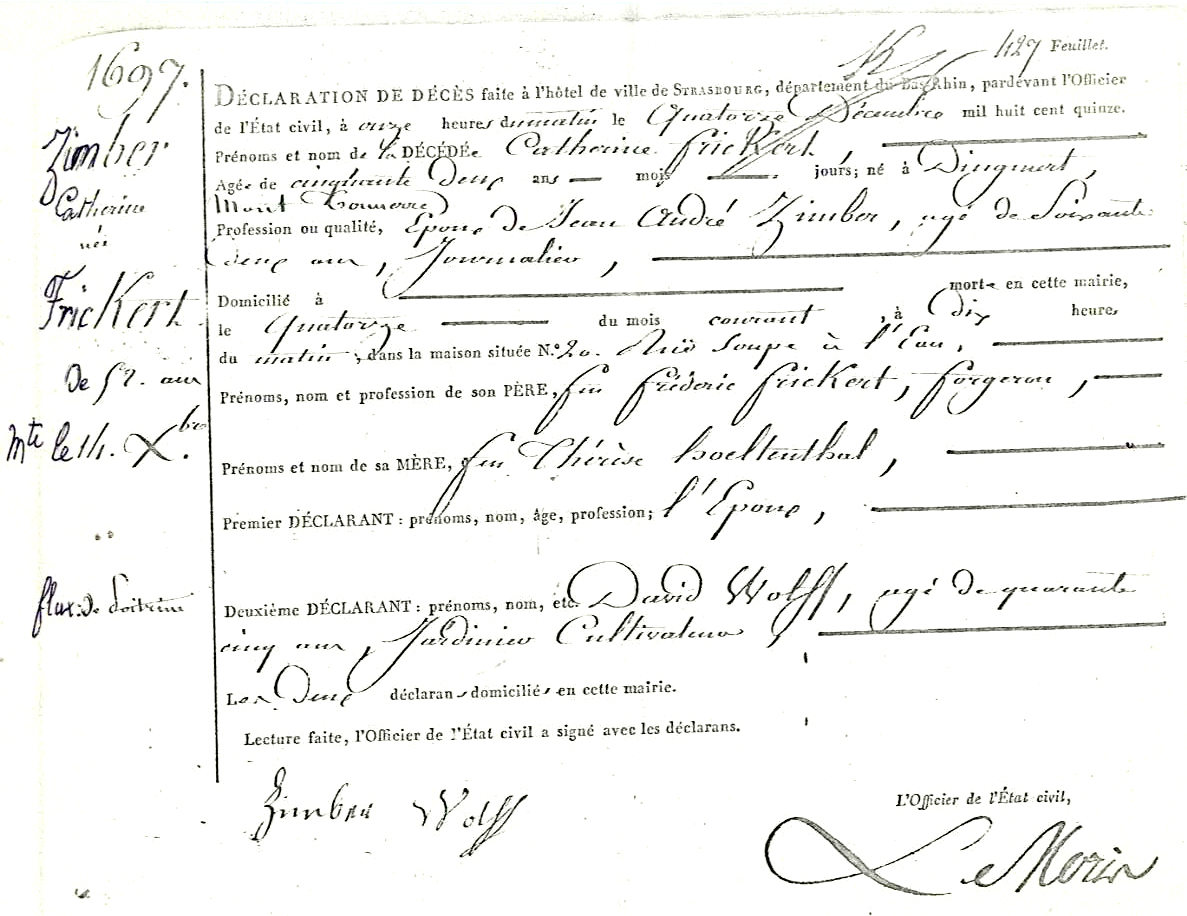 427 Feuillet.
1697.
DÉCLARATION DE DÉCÈS faite à l'hôtel de ville de STRASBOURG, département du Bas-Rhin, pardevant l'Officier
de l'État civil, à onze heures du matin le Quatorze Décembre mil huit cent quinze.
Prénoms et nom de la DÉCÉDÉe Catherine Frickert,
Agée de cinquante Deux ans — mois — jours; né à Dingmert,
Mont Tonnerre
Profession ou qualité, Epouse de Jean André Zimber, agé de Soixante
deux ans, Journalier,
Domicilié à morte en cette mairie,
le Quatorze du mois courant, à Dix heures
du matin, dans la maison située N.° 20. Rue Soupe à l'Eau,
Prénoms, nom et profession de son PÈRE, feu Fréderic Frickert, forgeron,
Prénoms et nom de sa MÈRE, feu Thérèse hoeltenthal,
Premier DÉCLARANT : prénoms, nom, âge, profession; l'Epoux,
Deuxième DÉCLARANT : prénoms, nom, etc. David Wolff, agé de quarante
cinq ans, Jardinier Cultivateur,
Les Deux déclarans domiciliés en cette mairie.
Lecture faite, l'Officier de l'État civil a signé avec les déclarans.
Zimber Wolff
L'Officier de l'État civil,
Le Morin
Zimber
Catherine
née
Frickert
De 52. ans
Mte le 14. Xbre
flux: de Poitrine